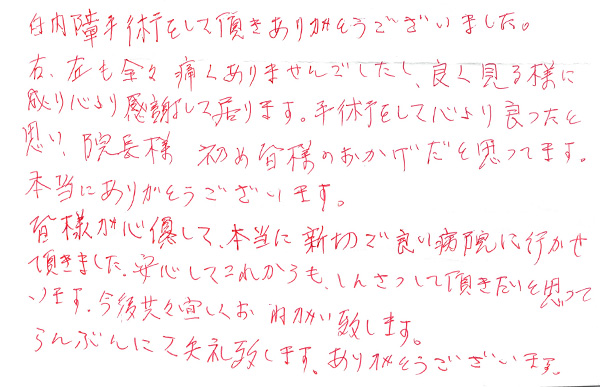 白内障手術をして頂きありがとうございました。
右、左も全々痛くありませんでしたし、良く見る様に
成り心より感謝して居ります。手術をして心より良ったと
思い、院長様 初め皆様のおかげだと思ってます。
本当にありがとうございます。
皆様が心優して、本当に新切で良い病院に行かせ
て頂きました、安心してこれからも、しんさつして頂きたいと思って
います。今後共々宜しくお ねがい致します。
らんぶんにて失礼致します。ありがとうございます。